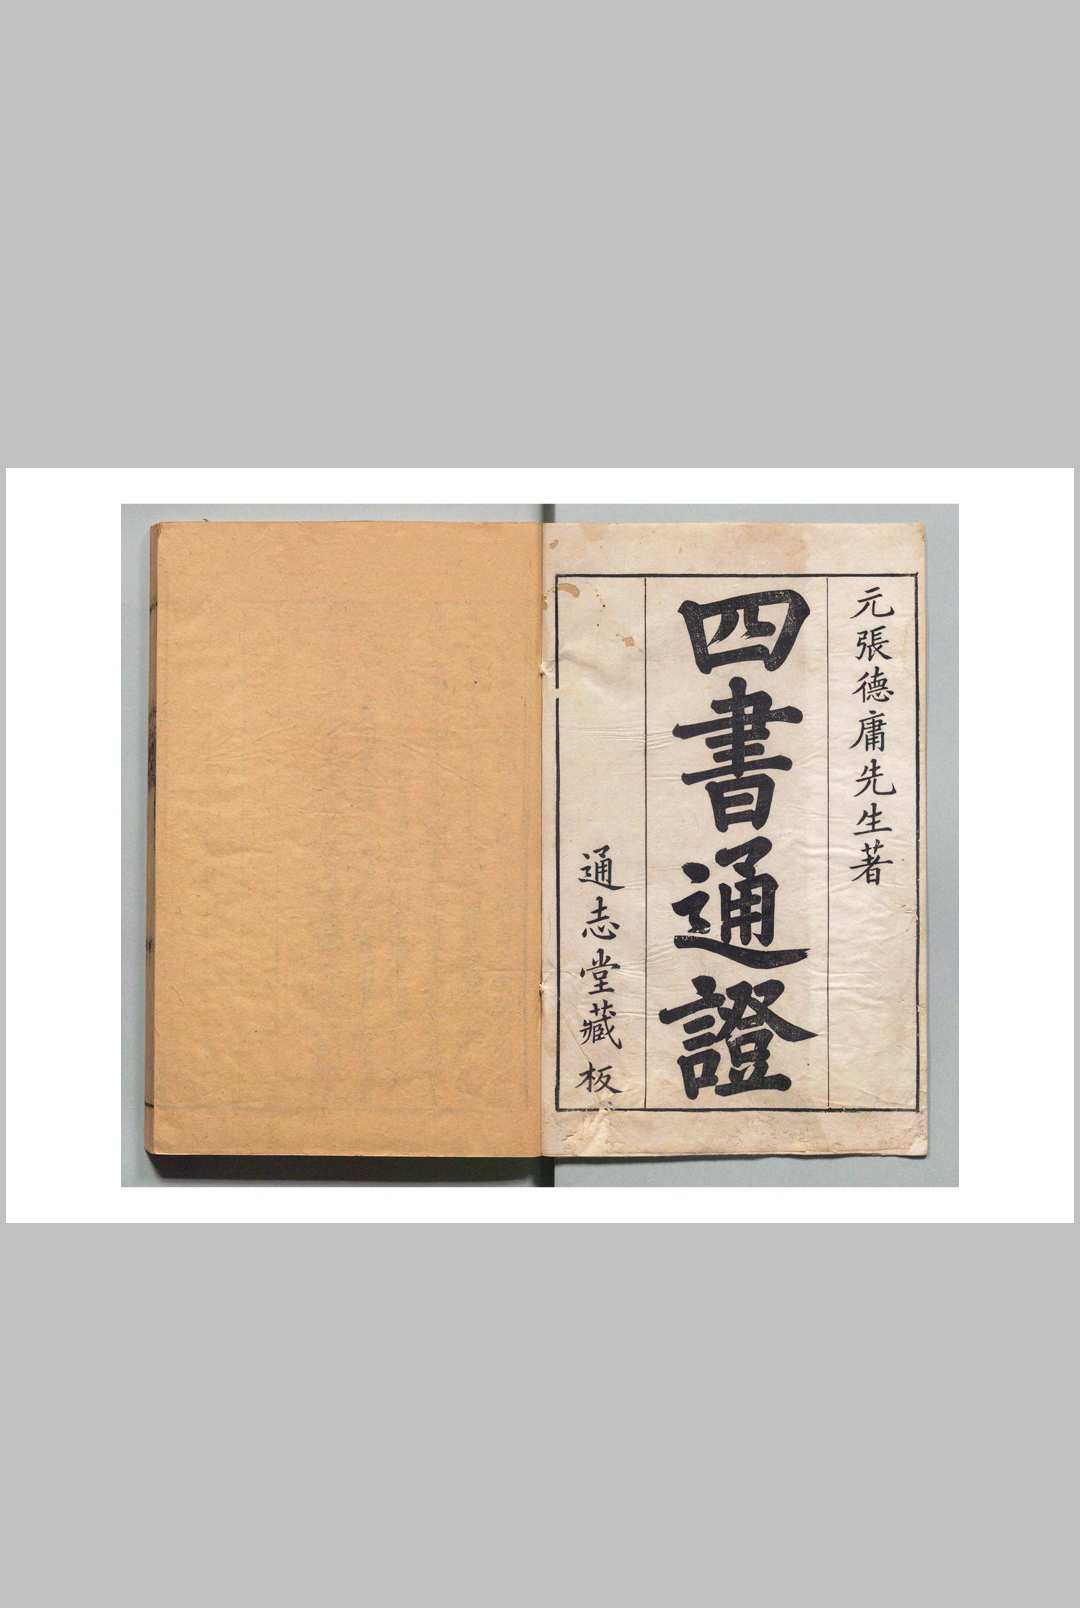 元張德庸先生著
四書通證
通志堂藏板